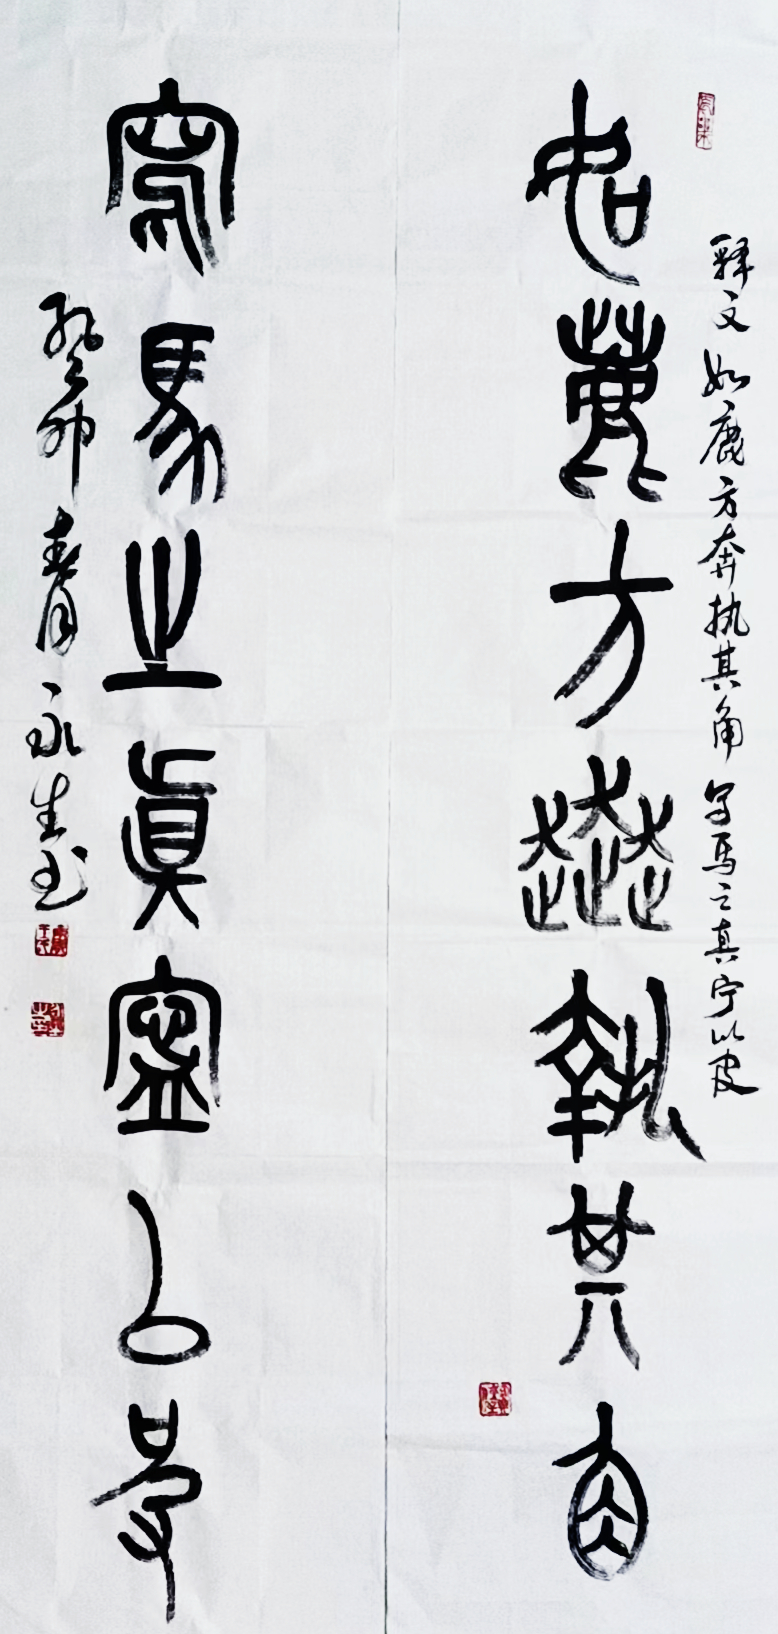 释文 如鹿方奔执其角 写马之真宁以皮
如鹿方奔執其角
寫馬之真寧以皮
癸卯春月永生书